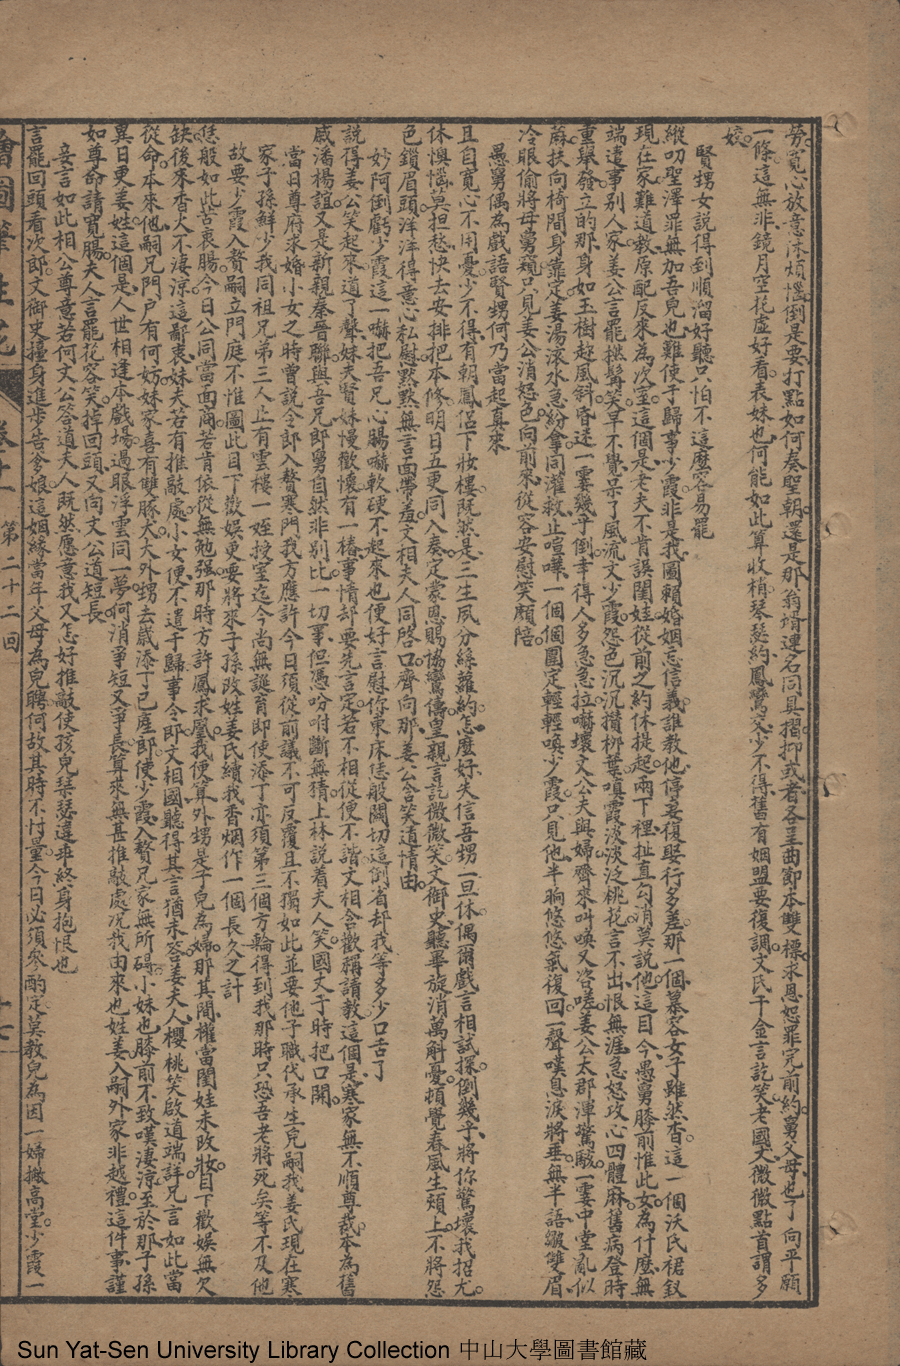 勞寬心放意休煩惱倒是要打點如何奏聖朝還是那翁壻連名同具摺抑或者各呈曲節本雙標求恩恕罪完前約舅父母也了向平願
一條這無非鏡月空花虛好看表妹也何能如此算收梢琴瑟約鳳鸞交少不得舊有姻盟要復調文氏千金言訖笑老國丈微微點首謂多
姣
賢甥女說得到順溜好聽只怕不這麼容易罷
縱叨聖澤罪無加吾兒也難使于歸事少霞非是我圖賴婚姻忘信義誰教他停妻復娶行多差那一個慕容女子雖然杳這一個沃氏裙釵
現在家難道教原配反來為次室這個是老夫不肯誤閨娃從前之約休提起兩下裡扯直勾消莫說他這目今愚舅膝前惟此女為什麼無
端遣事別人家姜公言罷撚髯笑早不覺呆了風流文少霞怨色沉沉攢柳葉嗔霞淡淡泛桃花言不出恨無涯急怒攻心四體麻舊病登時
重舉發立的那身如玉樹趁風斜昏迷一霎幾乎倒幸得人多急急拉嚇壞文公夫與婦齊來叫喚又咨嗟姜公太郡渾驚駭一霎中堂亂似
麻扶向椅間身靠定姜湯滾水急紛拿同灌救止喧嘩一個個圍定輕輕喚少霞只見他半晌悠悠氣復回一聲嘆息淚將垂無半語皺雙眉
冷眼偷將母舅窺只見姜公消怒色向前來從容安慰笑顏陪
愚舅偶為戲語賢甥何乃當起真來
且自寬心不用憂少不得有朝鳳侶下妝樓既然是三生夙分絲蘿約怎麼好失信吾甥一旦休偶爾戲言相試探倒幾乎將你驚壞我招尤
休懊惱莫担愁快去安排把本修明日五更同入奏定蒙恩賜協鸞儔皇親言訖微微笑文御史聽畢旋消萬斛憂頓覺春風生頰上不將怨
色鎖眉頭洋洋得意心私慰默默無言面帶羞文相夫人同啓口齊向那姜公含笑道情由
妙阿倒虧少霞這一嚇把吾兄心腸嚇軟硬不起來也便好言慰你東床恁般關切這倒省却我等多少口舌了
說得姜公笑起來道了聲妹夫賢妹慢歡懷有一樁事情却要先言定若不相從便不諧文相含歡稱請教這個是寒家無不順尊裁本為舊
戚潘楊誼又是新親秦晉聯與吾兄郎舅自然非別比一切事但憑吩咐斷無猜上林說着夫人笑國丈于時把口開
當日尊府求婚小女之時曾說令郎入贅寒門我方應許今日須從前議不可反覆且不獨如此並要他子職代承生兒嗣我姜氏現在寒
家子孫鮮少我同祖兄弟三人止有雲樓一姪授室迄今尚無誕育即使添丁亦須第三個方輪得到我那時只恐吾老將死矣等不及他
故要少霞入贅嗣立門庭不惟圖此目下歡娛更要將來子孫改姓姜氏續我香烟作一個長久之計
恁般如此苦衷腸今日公同當面商若肯依從無勉强那時方許鳳求凰我便算外甥是子兒為婦那其間權當閨娃未改妝目下歡娛無欠
缺後來香火不淒涼這鄙衷妹夫若有推敲處小女便不遣于歸事令郎文相國聽得其言猶未答姜夫人櫻桃笑啟道端詳兄言如此當
從命本來他嗣兄門戶有何妨妹家喜有雙豚犬大外甥去歲添丁已產郎使少霞入贅兄家無所碍小妹也膝前不致嘆淒涼至於那子孫
異日更姜姓這個是人世相逢本戲場過眼浮雲同一夢何消爭短又爭長算來無甚推敲處况我由來也姓姜入嗣外家非越禮這件事謹
如尊命請寬腸夫人言罷花容笑掉回頭又向文公道短長
妾言如此相公尊意若何文公答道夫人既然應意我又怎好推敲使孩兒琹瑟違乖終身抱恨也
言罷回頭看次郎文御史擡身進步告爹娘這姻緣當年父母為兒聘何故其時不忖量今日必須參酌定莫教兒為因一婦撇高堂少霞一
繪圖筆生花 卷十一 第二十二回 十七
Sun Yat-Sen University Library Collection 中山大學圖書館藏